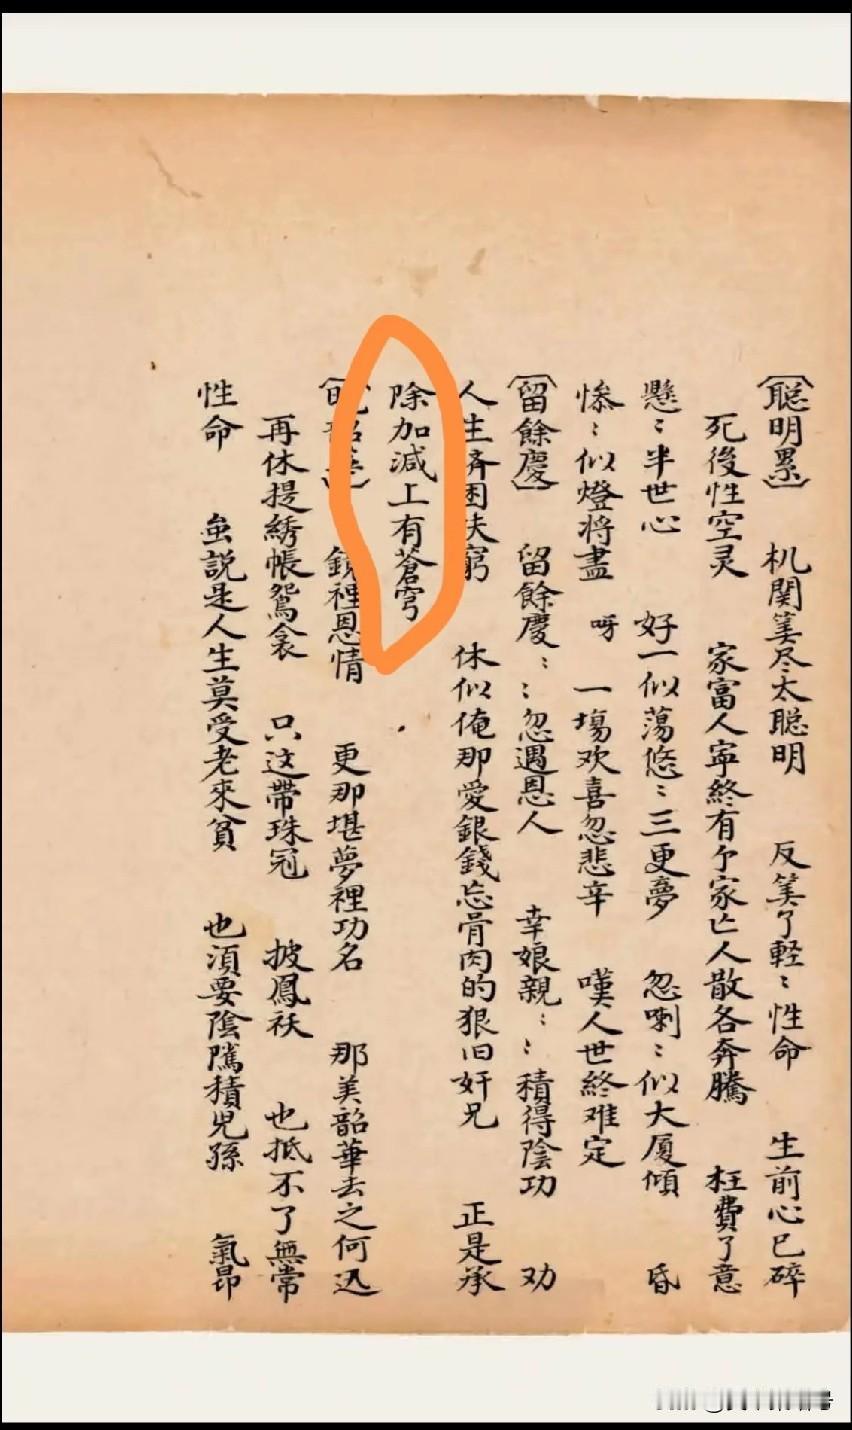 〔聪明累〕 机関筭尽太聪明 反筭了軽〻性命 生前心已碎
死後性空灵 家富人寜終有个家亡人散各奔騰 枉費了意
懸〻半世心 好一似蕩悠〻三更夢 忽喇〻似大厦傾 昏
惨〻似燈将盡 呀 一塲欢喜忽悲辛 嘆人世終难定
〔留餘慶〕 留餘慶〻〻忽遇恩人 幸娘親〻〻積得陰功 劝
人生済困扶窮 休似俺那愛銀錢忘骨肉的狠旧奸兄 正是承
除加減上有蒼穹
〔晩韶華〕 鏡裡恩情 更那堪夢裡功名 那美韶華去之何迅
再休提綉帳鴛衾 只这帶珠冠 披鳳袄 也抵不了無常
性命 虽説是人生莫受老來貧 也湏要陰隲積児孫 氣昂